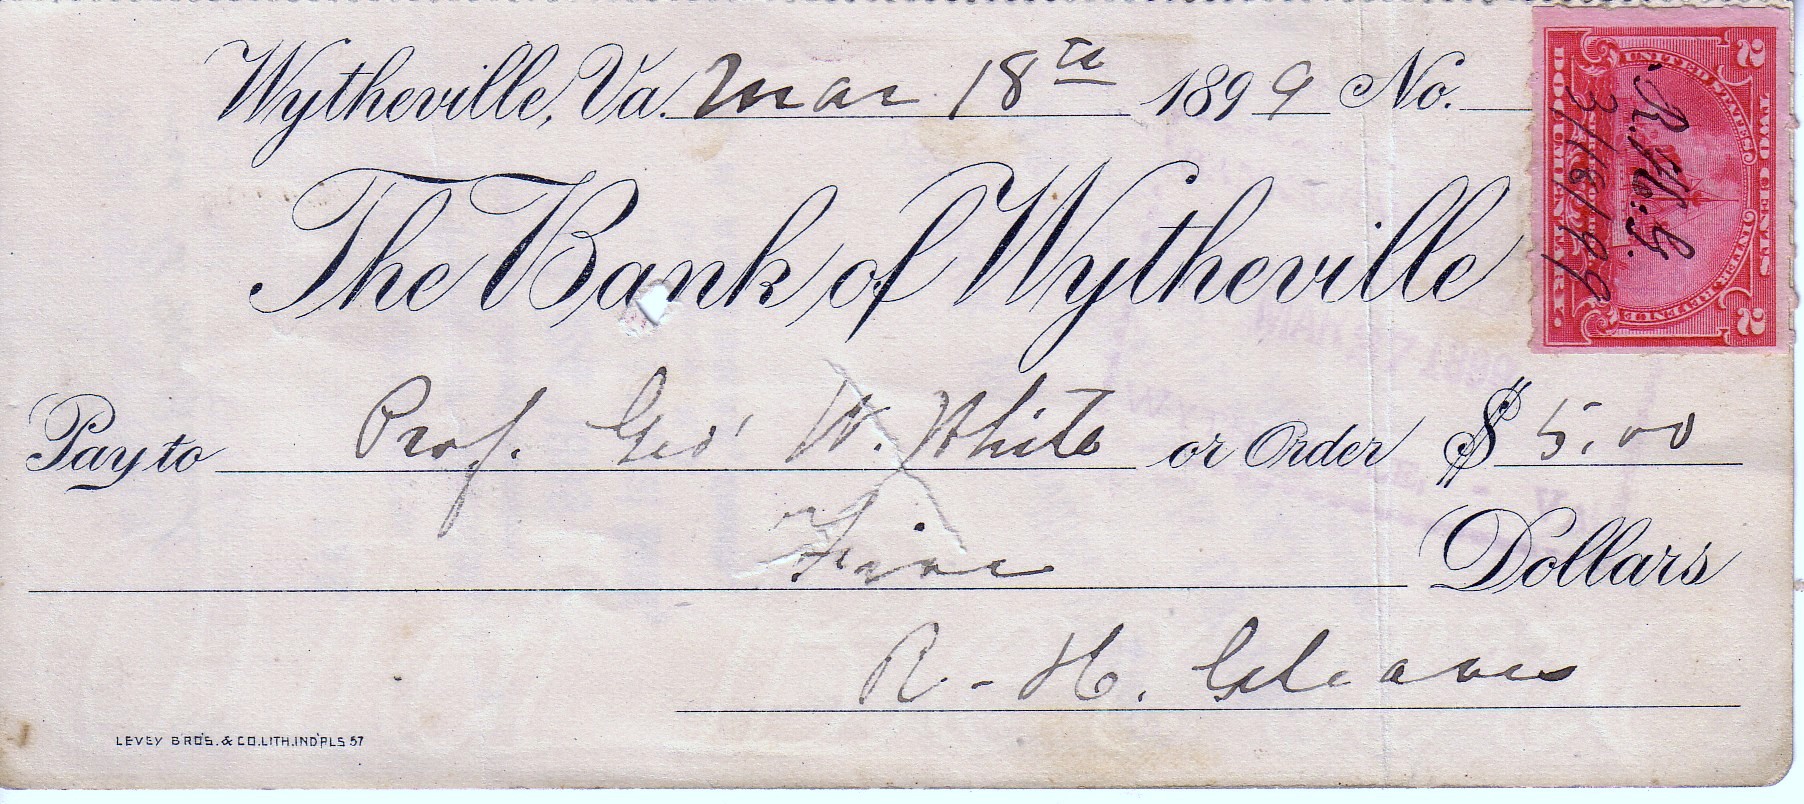 Wytheville, Va. Mar 18th 1899 No.
The Bank of Wytheville
Pay to Prof. Geo' W. White or Order $ 5.00
Five Dollars
R. H. Gleaves
LEVEY BRO'S. & CO. LITH. IND'PLS 57
2 TWO CENTS 2
UNITED STATES
INTERNAL REVENUE
DOCUMENTARY.
R. H. G.
3/18/99